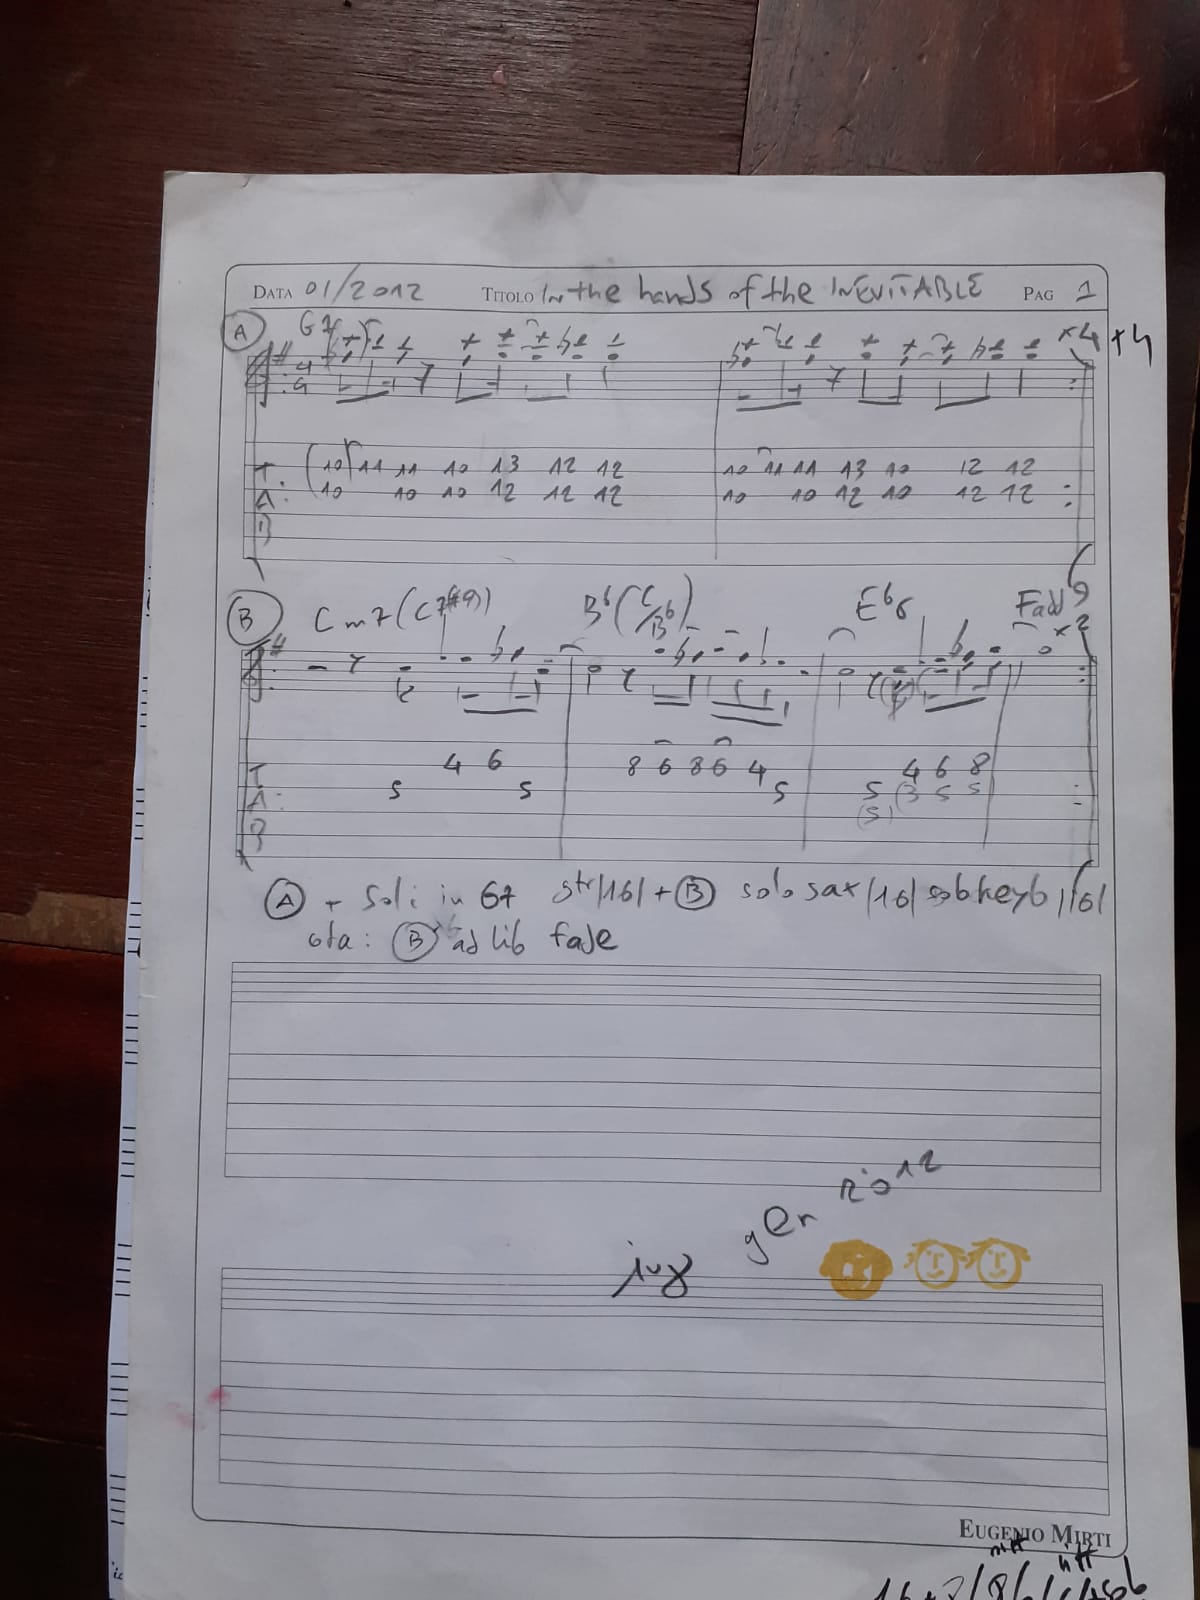 DATA 01/2012 TITOLO In the hands of the INEVITABLE PAG 1
A G7 x4 x4
4
4
T (10) 11 11 10 13 12 12 10 11 11 13 10 12 12
A 10 10 10 12 12 12 10 10 12 10 12 12
B
B Cm7 (C7#9) Bb (C/Bb) Eb6 Fadd9
x2
T 4 6 8 6 8 6 4 4 6 8
A 5 5 5 5 (3 5 5
B (5)
A + soli in G7 gtr |16| + B solo sax |16| keyb |16|
B ad lib fade
gen 2012
EUGENIO MIRTI